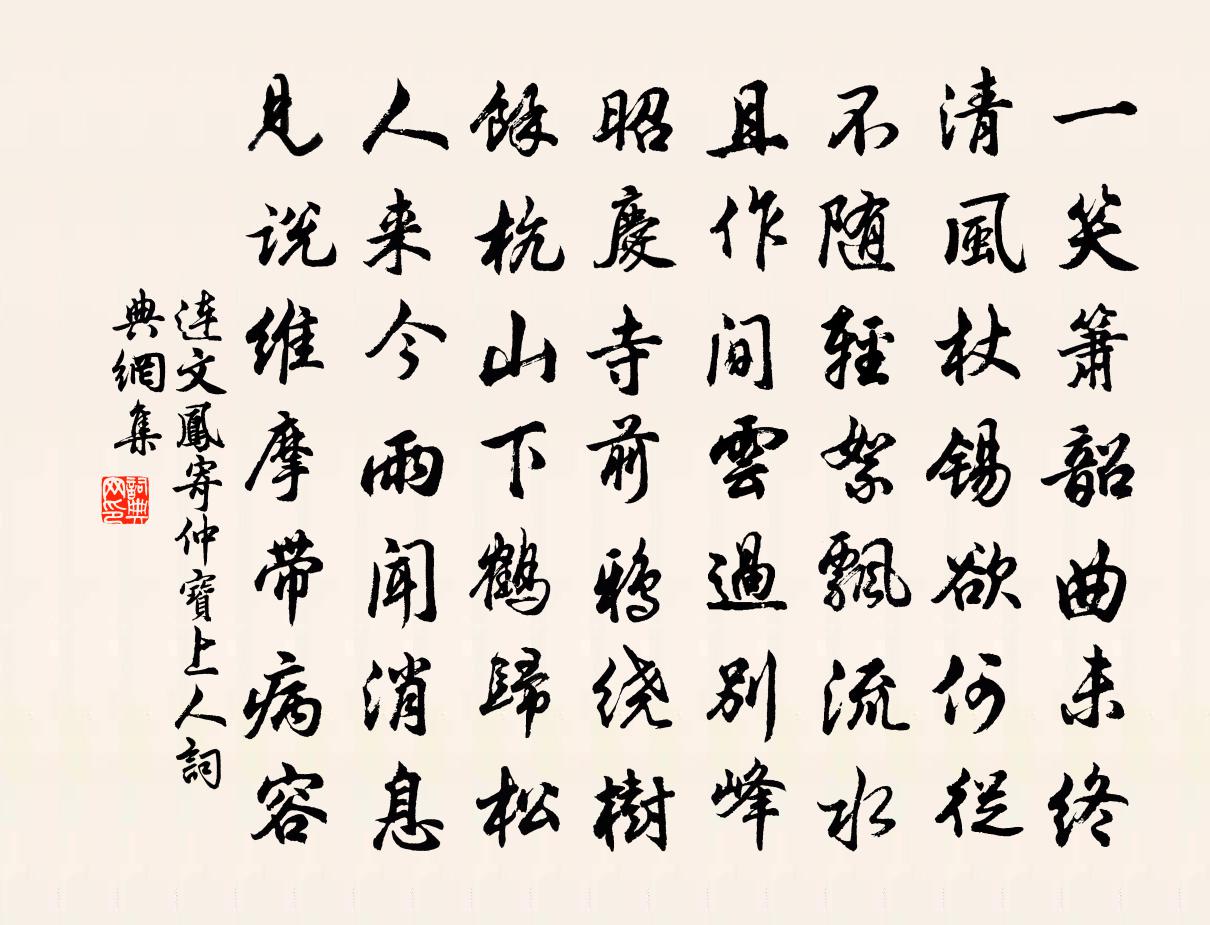 一笑箫韶曲未终
清風杖錫欲何從
不随輕絮飄流水
且作间雲過别峰
昭慶寺前鴉绕樹
餘杭山下鶴歸松
人来今雨闻消息
見说维摩带病容
连文鳳寄仲寶上人詞
典網集
詞典
网印